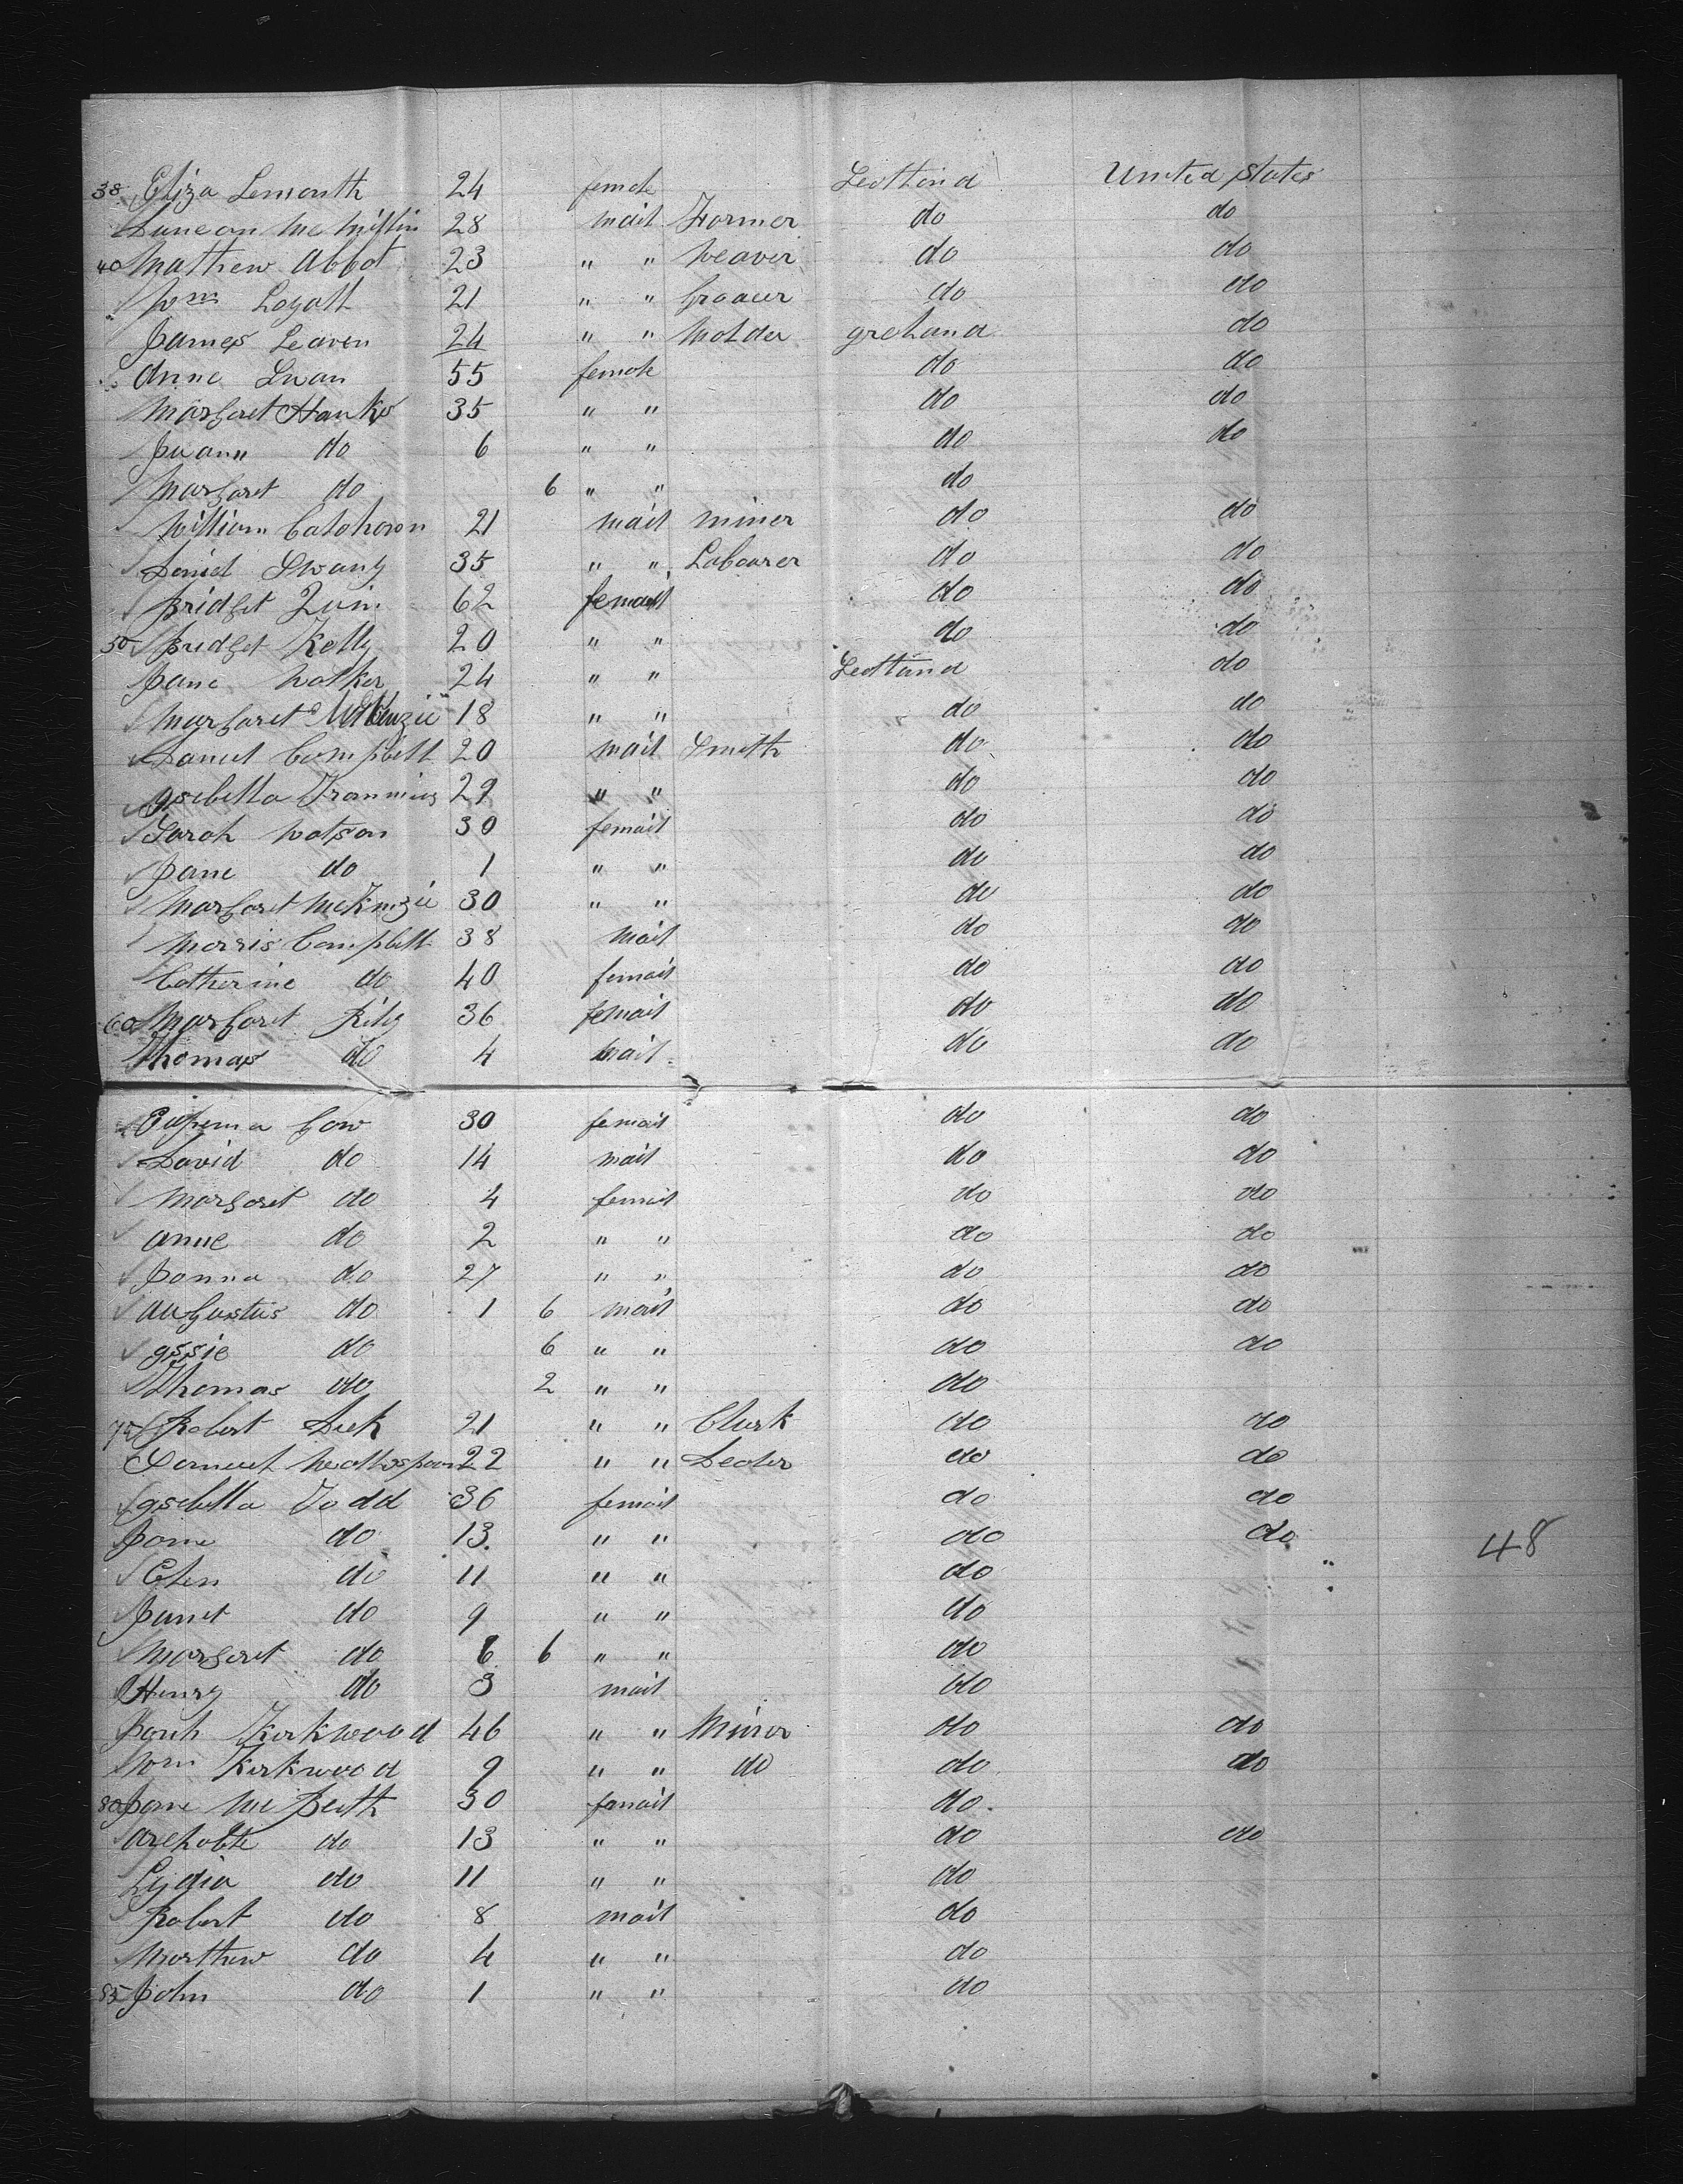 38 Eliza Lemonth 24 female Scottland United States
Duncan McMillin 28 mail Farmer do do
40 Mathew Abbot 23 " " Weaver do do
Wm Logatt 21 " " do do
James Leaven 24 " " Molder Ireland do
Anne Swan 55 female do do
Margaret Hanks 35 " " do do
do 6 " " do do
Margaret do 6 " " do
William 21 mail miner do do
Daniel Swany 35 " " Labourer do do
Bridget Quin 62 femail do do
50 Bridget Kelly 20 " " do do
Jane Walker 24 " " Scottland do
Margaret McKenzie 18 " " do do
Daniel Campbell 20 mail Smith do do
Isabella 29 " " do do
Sarah Watson 30 femail do do
Jane do 1 " " do do
Margaret McKinzie 30 " " do do
Morris Campbell 38 mail do do
Catherine do 40 femail do do
60 Margaret Rily 36 femail do do
Thomas do 4 mail do do
Gow 30 femail do do
David do 14 mail do do
Margaret do 4 femail do do
Anne do 2 " " do do
do 27 " " do do
Augustus do 1 6 mail do do
Issie do 6 " " do do
Thomas do 2 " " do
Robert Dick 21 " " Clurk do do
22 " " Dealer do do
Isabella Todd 36 femail do do
Jane do 13 " " do do
Elen do 11 " " do
Janet do 9 " " do
48
Margaret do 6 6 " " do
Henry do 3 mail do
Kirkwood 46 " " Miner do do
Wm Kirkwood 9 " " do do do
80 Jane McBeth 30 femail do
do 13 " " do do
Lydia do 11 " " do
Robert do 8 mail do
Matthew do 4 " " do
85 John do 1 " " do